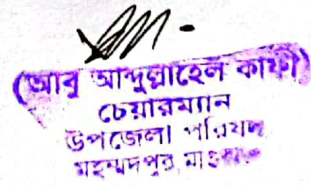 (আবু আব্দুল্লাহেল কাফী)
চেয়ারম্যান
উপজেলা পরিষদ
মহম্মদপুর, মাগুরা